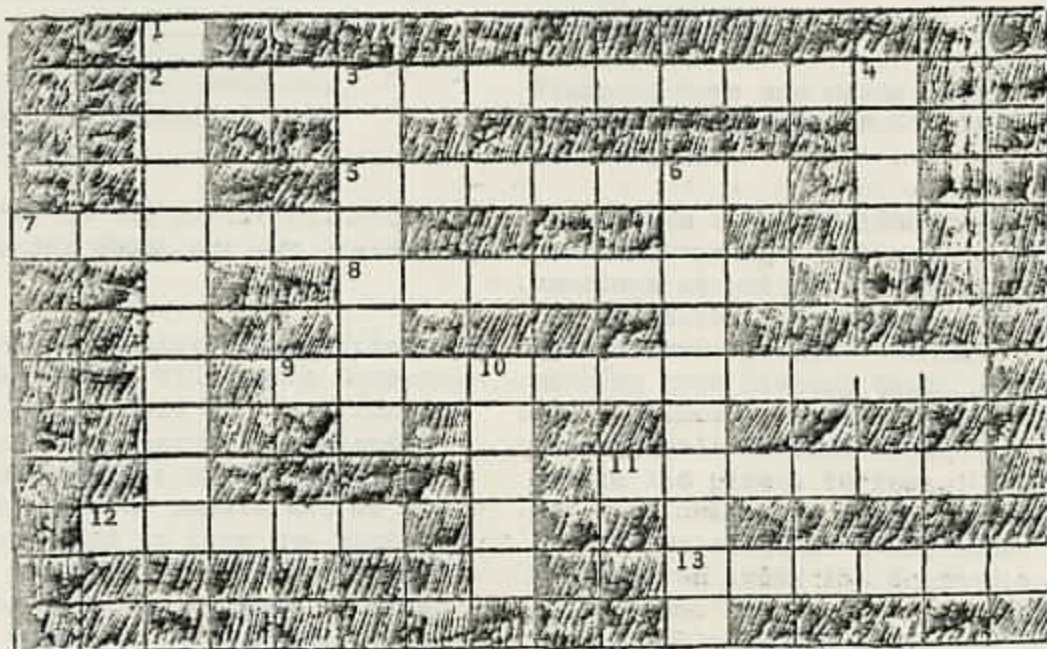 1
2 3 4
5 6
7
8
9 10
11
12
13